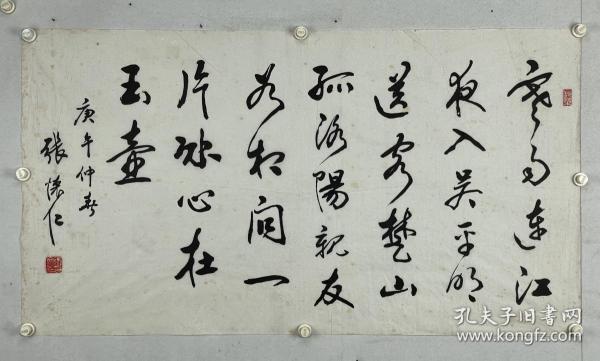 寒雨連江
夜入吴平明
送客楚山
孤洛陽親友
如相问一
片冰心在
玉壺
庚午仲春
張懷仁
孔夫子旧书网
www.kongfz.com